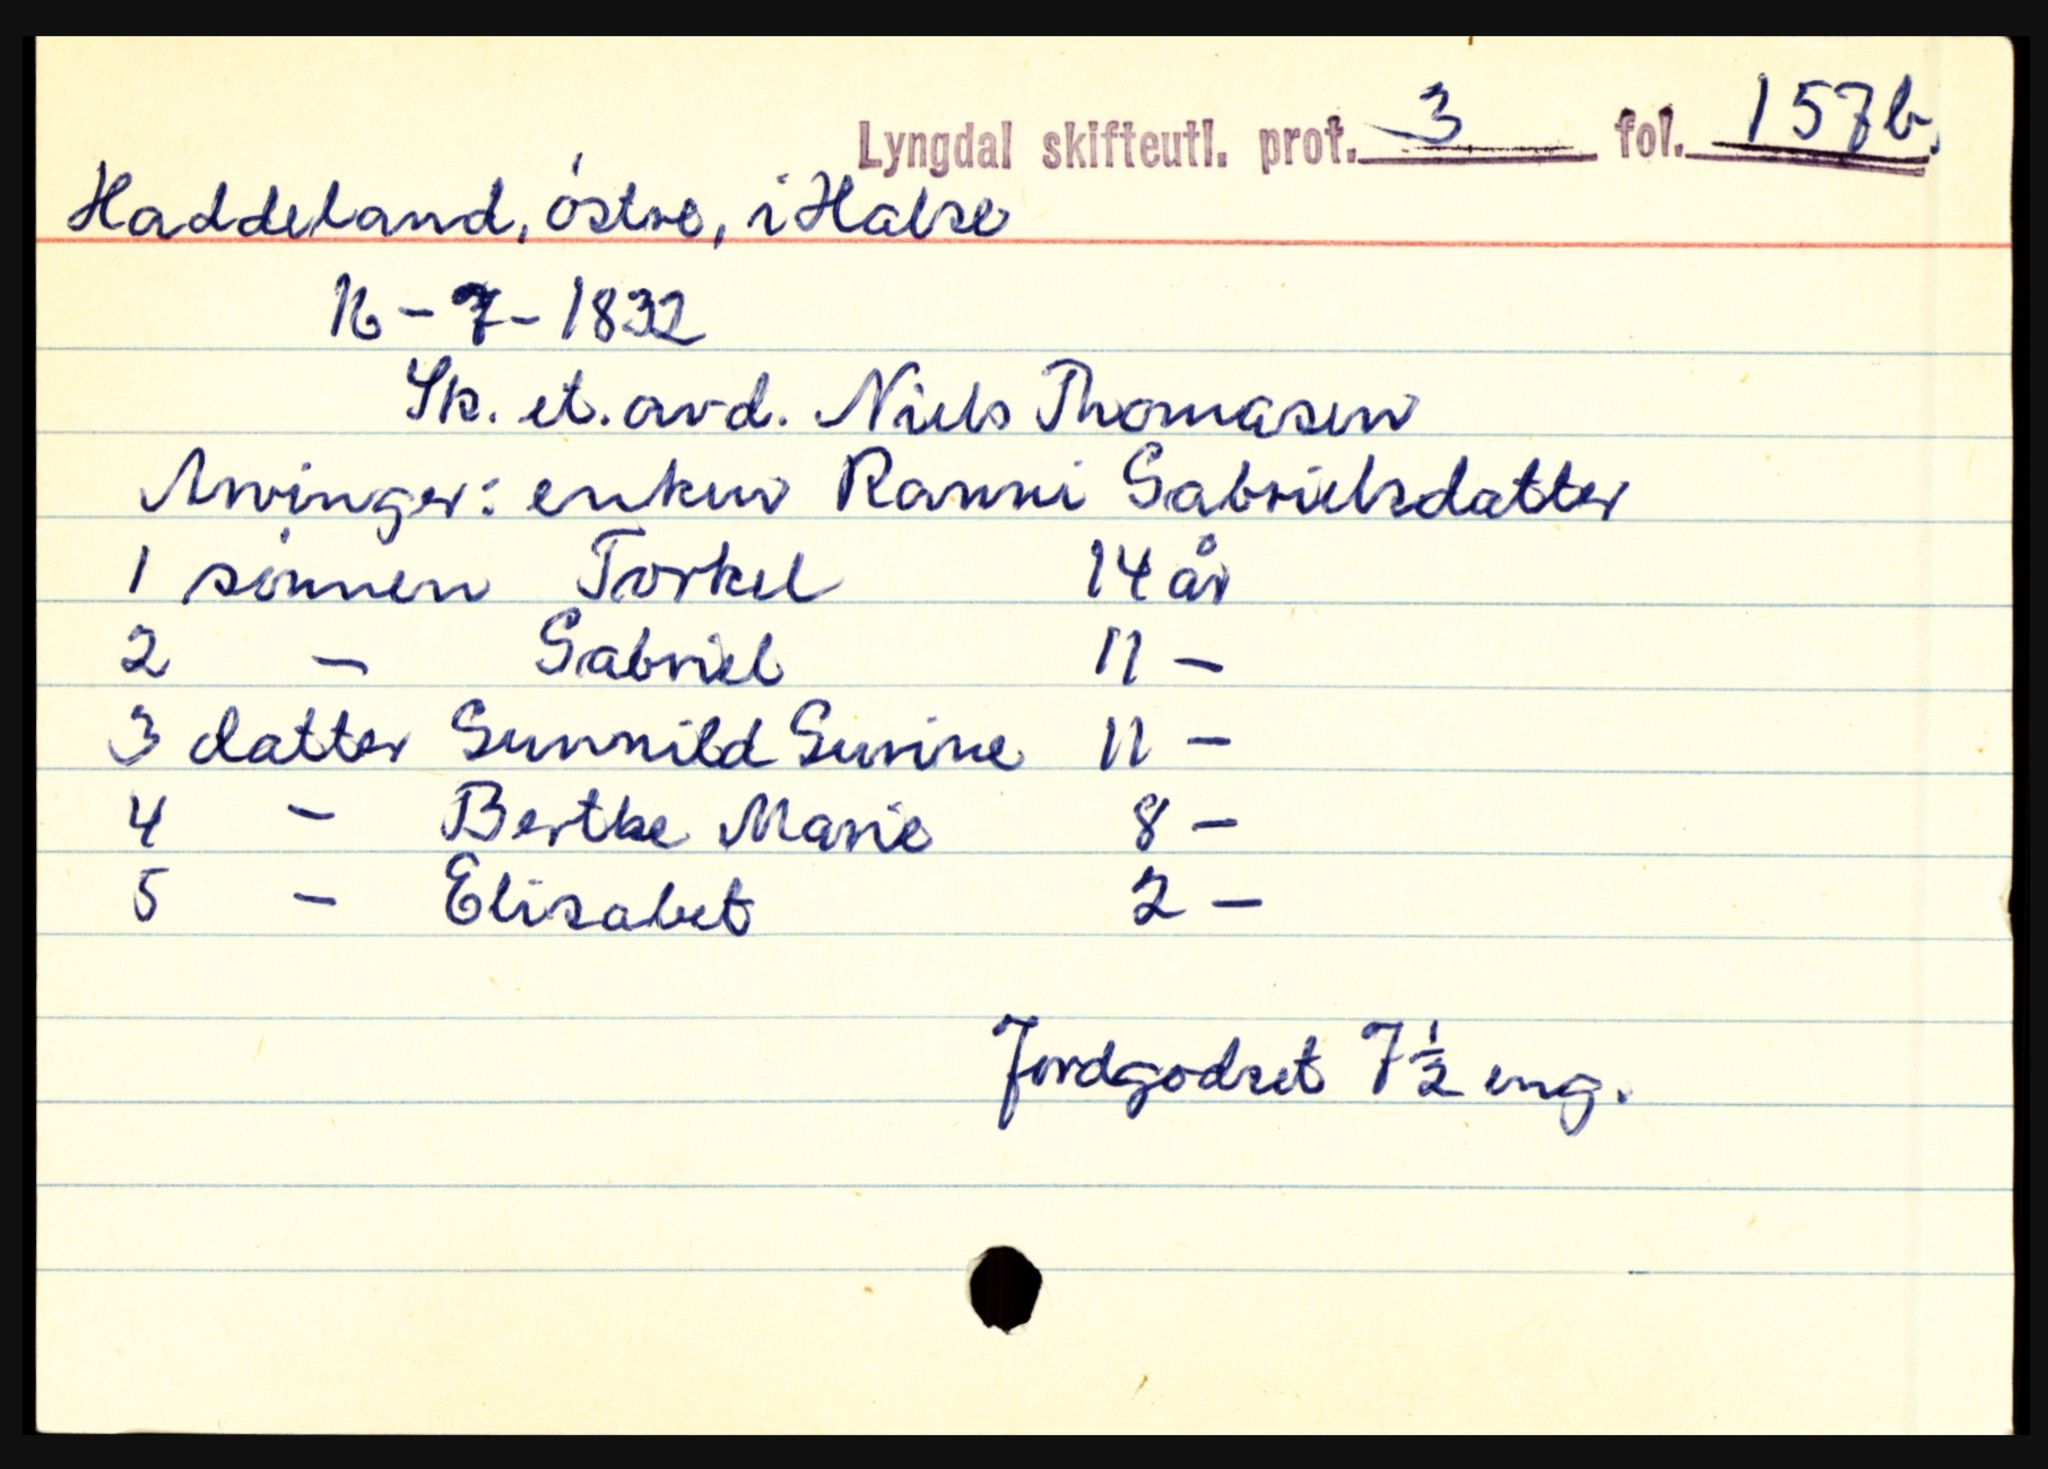 Lyngdal skifteutl. prot. 3 fol. 157b.
Haddeland, östre, i Halse
16-7-1832
Sk. et. avd. Niels Thomasen
Arvinger: enken Ranni Gabrielsdatter
1 sönnen Torkel 14 år
2 - Gabriel 11 -
3 datter Gunnild Gurine 11 -
4 - Berthe Marie 8 -
5 - Elisabet 2 -
Jordgodset 7 1/2 eng.